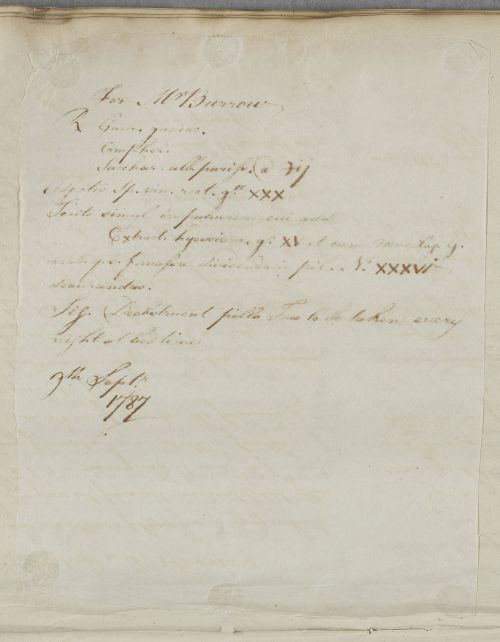 For Mr Burrow
℞ Gum. guaiac.
Camphor.
Sacchar. alb. puriss. a ʒij
Sp. vin. rect. gtt XXX
simul in pulverem cui add
Extract. hyosciam. gr. XV et cum q.
f. massa dividenda in pil. No. XXXVI
deaurandas.
Sig. Deobstruent pills Two to be taken every
night at bed time
9th Septr.
1787